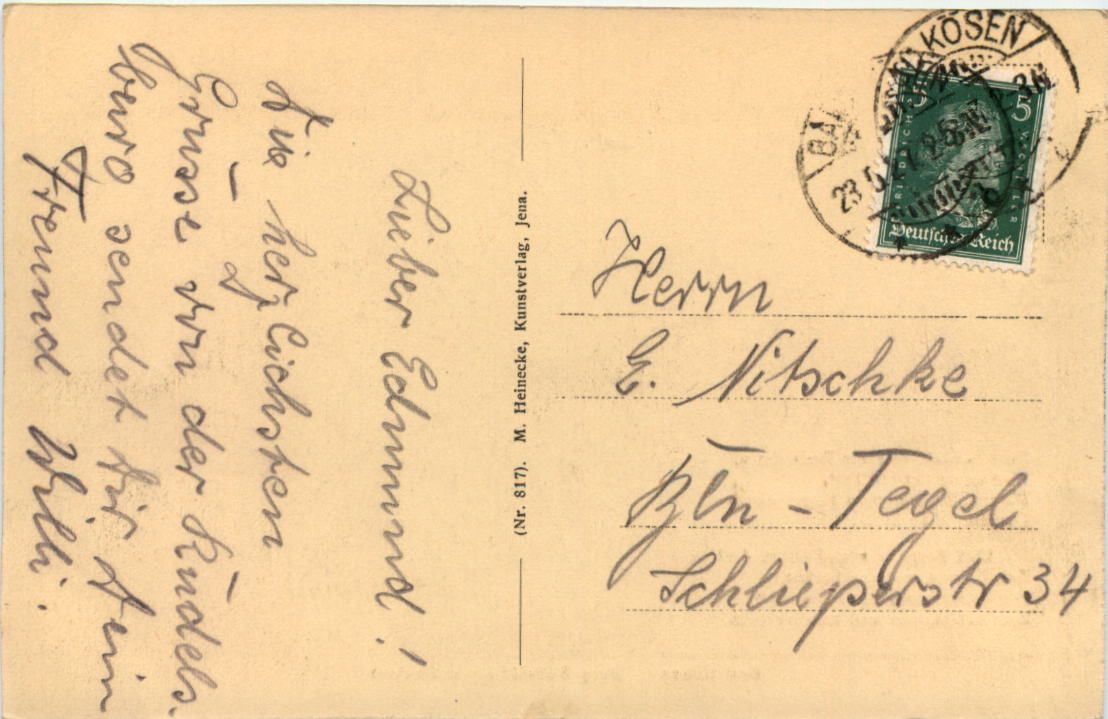 Lieber Edmund!
Die herzlichsten
Grüsse von der Rudels-
burg sendet dir dein
Freund Willi.
(Nr. 817). M. Heinecke, Kunstverlag, Jena.
Herrn
E. Nitschke
Bln - Tegel
Schlieperstr 34
KÖSEN
5
FRIEDRICH V. SCHILLER
Deutsches Reich